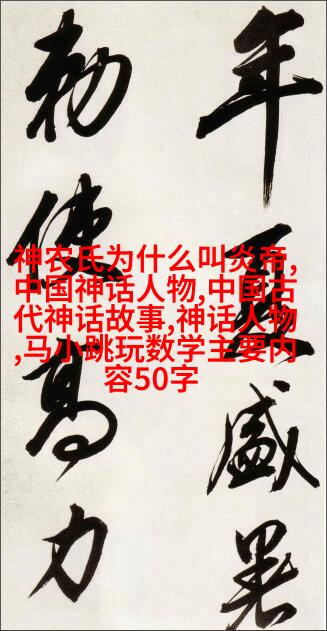 年夏盛暑
勅使高力
神农氏为什么叫炎帝,
中国神话人物,中国古
代神话故事,神话人物
,马小跳玩数学主要内
容50字